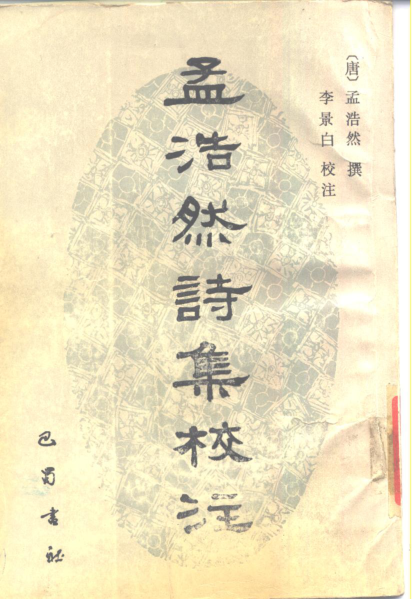 〔唐〕孟浩然 撰
李景白 校注
孟浩然詩集校注
巴蜀书社